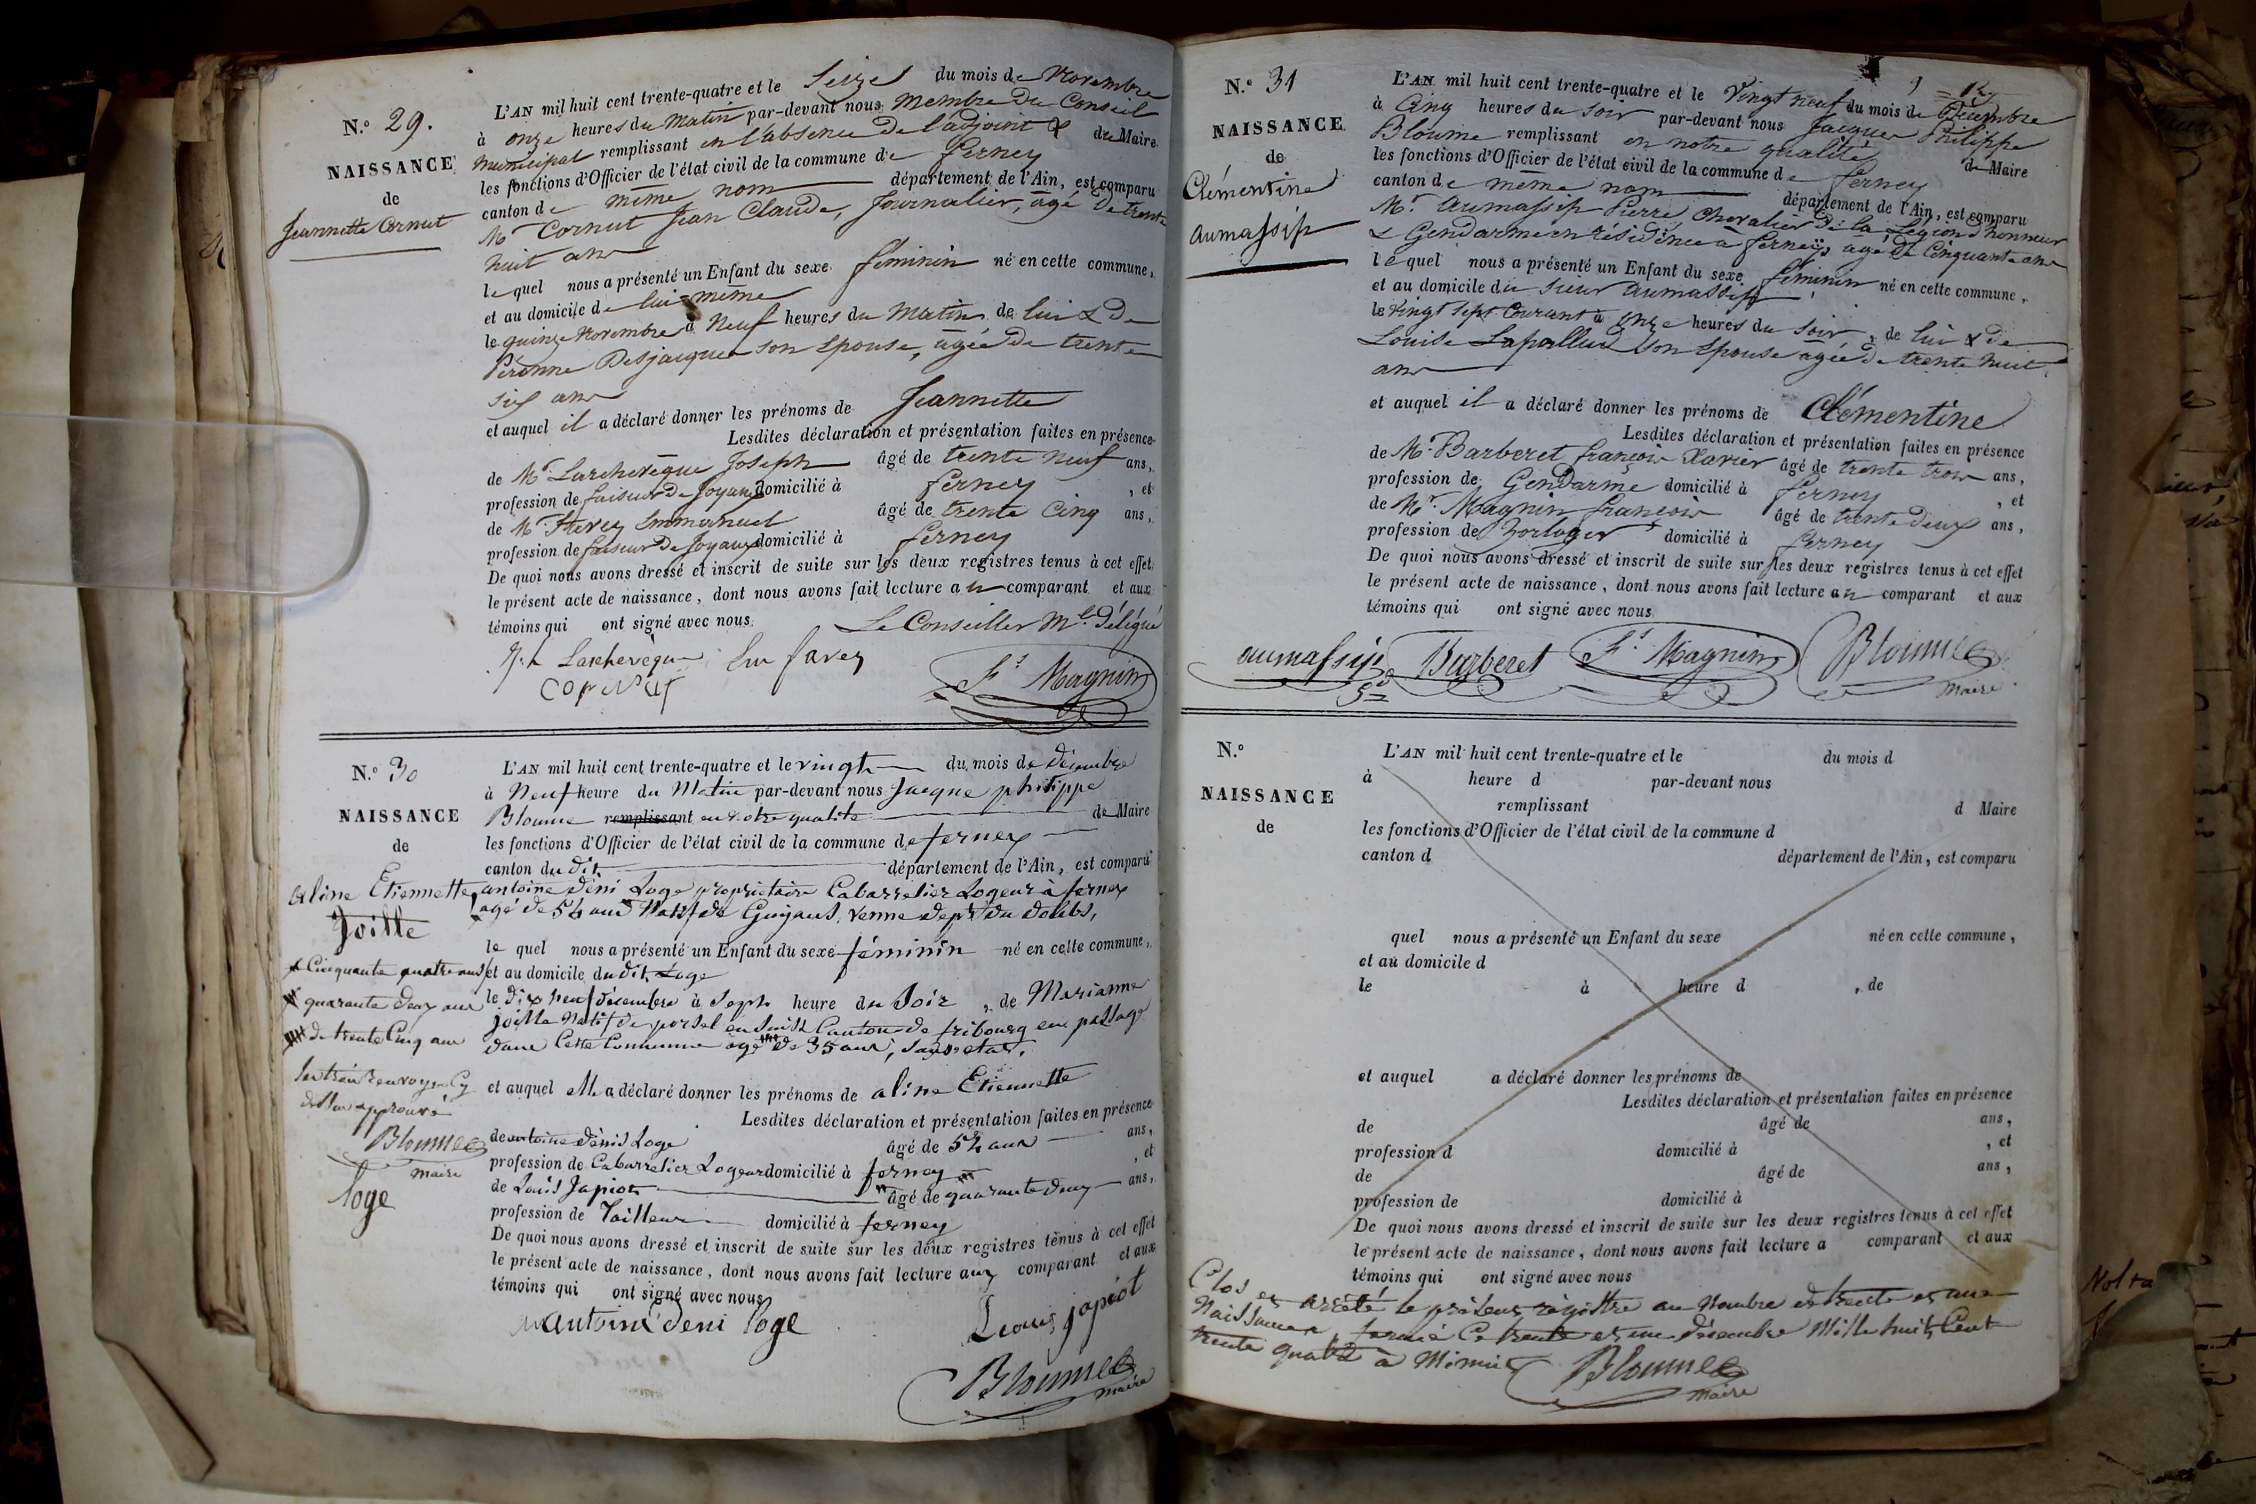 N.° 29.
NAISSANCE
de
Jeannette Cornut
L'AN mil huit cent trente-quatre et le Seize du mois de Novembre
à onze heures du Matin par-devant nous Membre du Conseil
Municipal remplissant en l'absence de l'adjoint & du Maire
les fonctions d'Officier de l'état civil de la commune de ferney
canton de même nom département de l'Ain, est comparu
Mr Cornut Jean Claude, Journalier, agé de trente
huit ans
le quel nous a présenté un Enfant du sexe féminin né en cette commune,
et au domicile de lui-même
le quinze Novembre à Neuf heures du Matin de lui & de
Péronne Desjacques son Epouse, agée de trente
six ans
et auquel il a déclaré donner les prénoms de Jeannette
Lesdites déclaration et présentation faites en présence
de Mr. Larchevêque Joseph âgé de trente neuf ans,
profession de faiseur de Joyaux domicilié à ferney, et
de Mr. Emmanuel âgé de trente Cinq ans,
profession de faiseur de Joyaux domicilié à ferney
De quoi nous avons dressé et inscrit de suite sur les deux registres tenus à cet effet
le présent acte de naissance, dont nous avons fait lecture au comparant et aux
témoins qui ont signé avec nous.
Le Conseiller Ml. délégué
Jh Larcheveque Em favez
Cornut
Fs Magnin
N.° 30
NAISSANCE
de
aline Etiennette
Joille
L'AN mil huit cent trente-quatre et le vingt du mois de décembre
à Neuf heure du Matin par-devant nous Jacque philippe
Bloume remplissant en notre qualité de Maire
les fonctions d'Officier de l'état civil de la commune de ferney
canton du dit département de l'Ain, est comparu
antoine déni Loge propriétaire Cabarretier Logeur à ferney
agé de 54 ans Natif de Guyans Venne dept du doubs,
le quel nous a présenté un Enfant du sexe féminin né en cette commune,
et au domicile dudit Loge
le dix neuf décembre à Sept heure du Soir, de Marianne
joille Natif de porsel en Suisse Canton de fribourg en passage
dans Cette Commune agé de 35 ans, sans etat,
Cinquante quatre ans
quarante deux ans
de trente Cinq ans
approuvé
Bloume
maire
loge
et auquel elle a déclaré donner les prénoms de aline Etiennette
Lesdites déclaration et présentation faites en présence
de antoine dénis Loge âgé de 54 ans ans,
profession de Cabarretier Logeur domicilié à ferney, et
de Louis Japiot âgé de quarante deux ans,
profession de Tailleur domicilié à ferney
De quoi nous avons dressé et inscrit de suite sur les deux registres tenus à cet effet
le présent acte de naissance, dont nous avons fait lecture aux comparant et aux
témoins qui ont signé avec nous
antoine deni loge
Louis japiot
Bloume
maire
N.° 31
NAISSANCE
de
Clémentine
aumassip
L'AN mil huit cent trente-quatre et le Vingt neuf du mois de Décembre
à Cinq heures du soir par-devant nous Jacques Philippe
Bloume remplissant en notre qualité de Maire
les fonctions d'Officier de l'état civil de la commune de ferney
canton de même nom département de l'Ain, est comparu
Mr. aumassip Pierre Chevalier de la Légion d'honneur
& Gendarme en résidence à ferney, agé de Cinquante ans
le quel nous a présenté un Enfant du sexe féminin né en cette commune,
et au domicile du sieur aumassip
le Vingt sept Courant à onze heures du soir, de lui & de
Louise Lapallud son Epouse agée de trente huit
ans
et auquel il a déclaré donner les prénoms de Clémentine
Lesdites déclaration et présentation faites en présence
de Mr. Barberet françois Xavier âgé de trente trois ans,
profession de Gendarme domicilié à ferney, et
de Mr. Magnin françois âgé de trente deux ans,
profession de horloger domicilié à ferney
De quoi nous avons dressé et inscrit de suite sur les deux registres tenus à cet effet
le présent acte de naissance, dont nous avons fait lecture au comparant et aux
témoins qui ont signé avec nous
aumassip Barberet Fs. Magnin Bloume
maire
N.°
NAISSANCE
de
L'AN mil huit cent trente-quatre et le du mois d
à heure d par-devant nous
remplissant d Maire
les fonctions d'Officier de l'état civil de la commune d
canton d département de l'Ain, est comparu
quel nous a présenté un Enfant du sexe né en cette commune,
et au domicile d
le à heure d, de
et auquel a déclaré donner les prénoms de
Lesdites déclaration et présentation faites en présence
de âgé de ans,
profession d domicilié à, et
de âgé de ans,
profession de domicilié à
De quoi nous avons dressé et inscrit de suite sur les deux registres tenus à cet effet
le présent acte de naissance, dont nous avons fait lecture a comparant et aux
témoins qui ont signé avec nous
Clos et arrêté le présent régistre au Nombre de trente et une
Naissances, fermé Ce trente et un décembre Mille huit Cent
trente quatre à Minuit
Bloume
maire